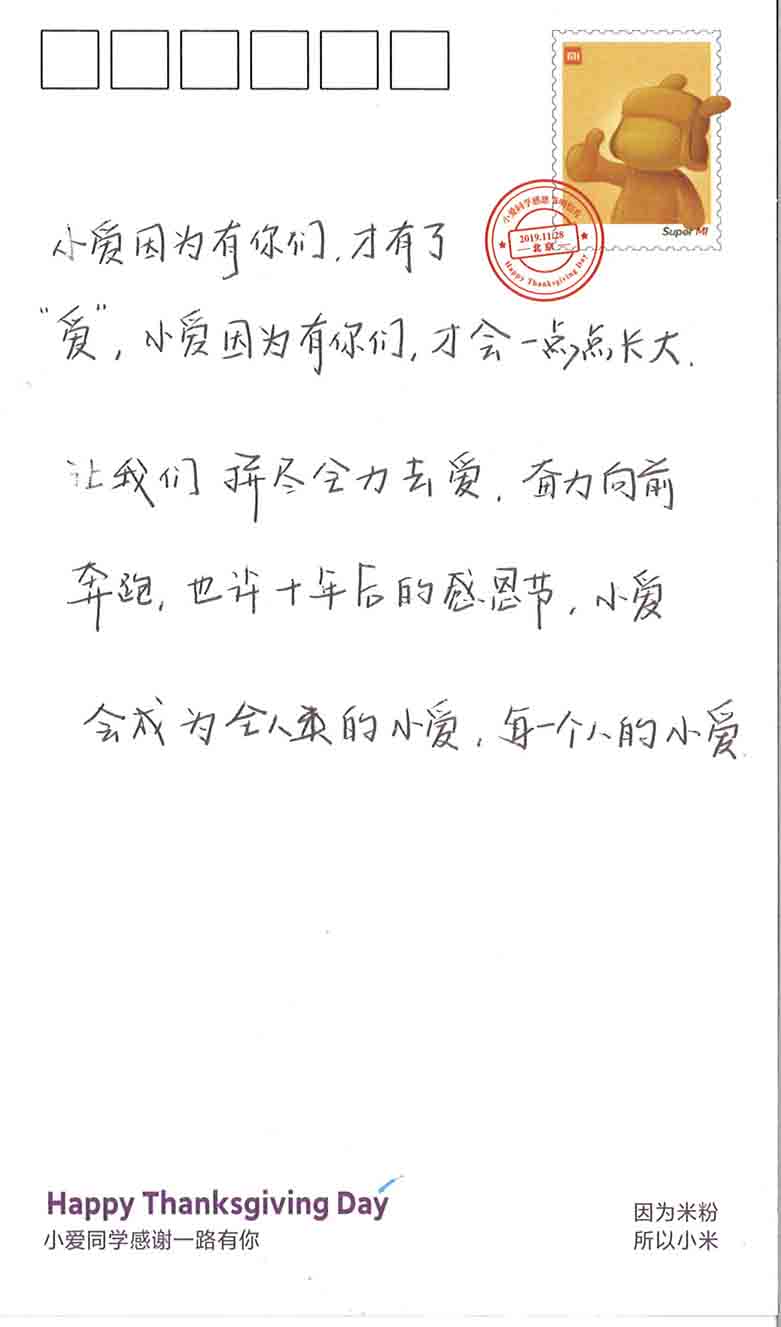 MI
Super MI
小爱同学感恩节明信片
2019.11.28
北京
Happy Thanksgiving Day
小爱因为有你们,才有了
“爱”,小爱因为有你们,才会一点点长大.
让我们拼尽全力去爱,奋力向前
奔跑,也许十年后的感恩节,小爱
会成为全人类的小爱,每一个人的小爱.
Happy Thanksgiving Day
小爱同学感谢一路有你
因为米粉
所以小米